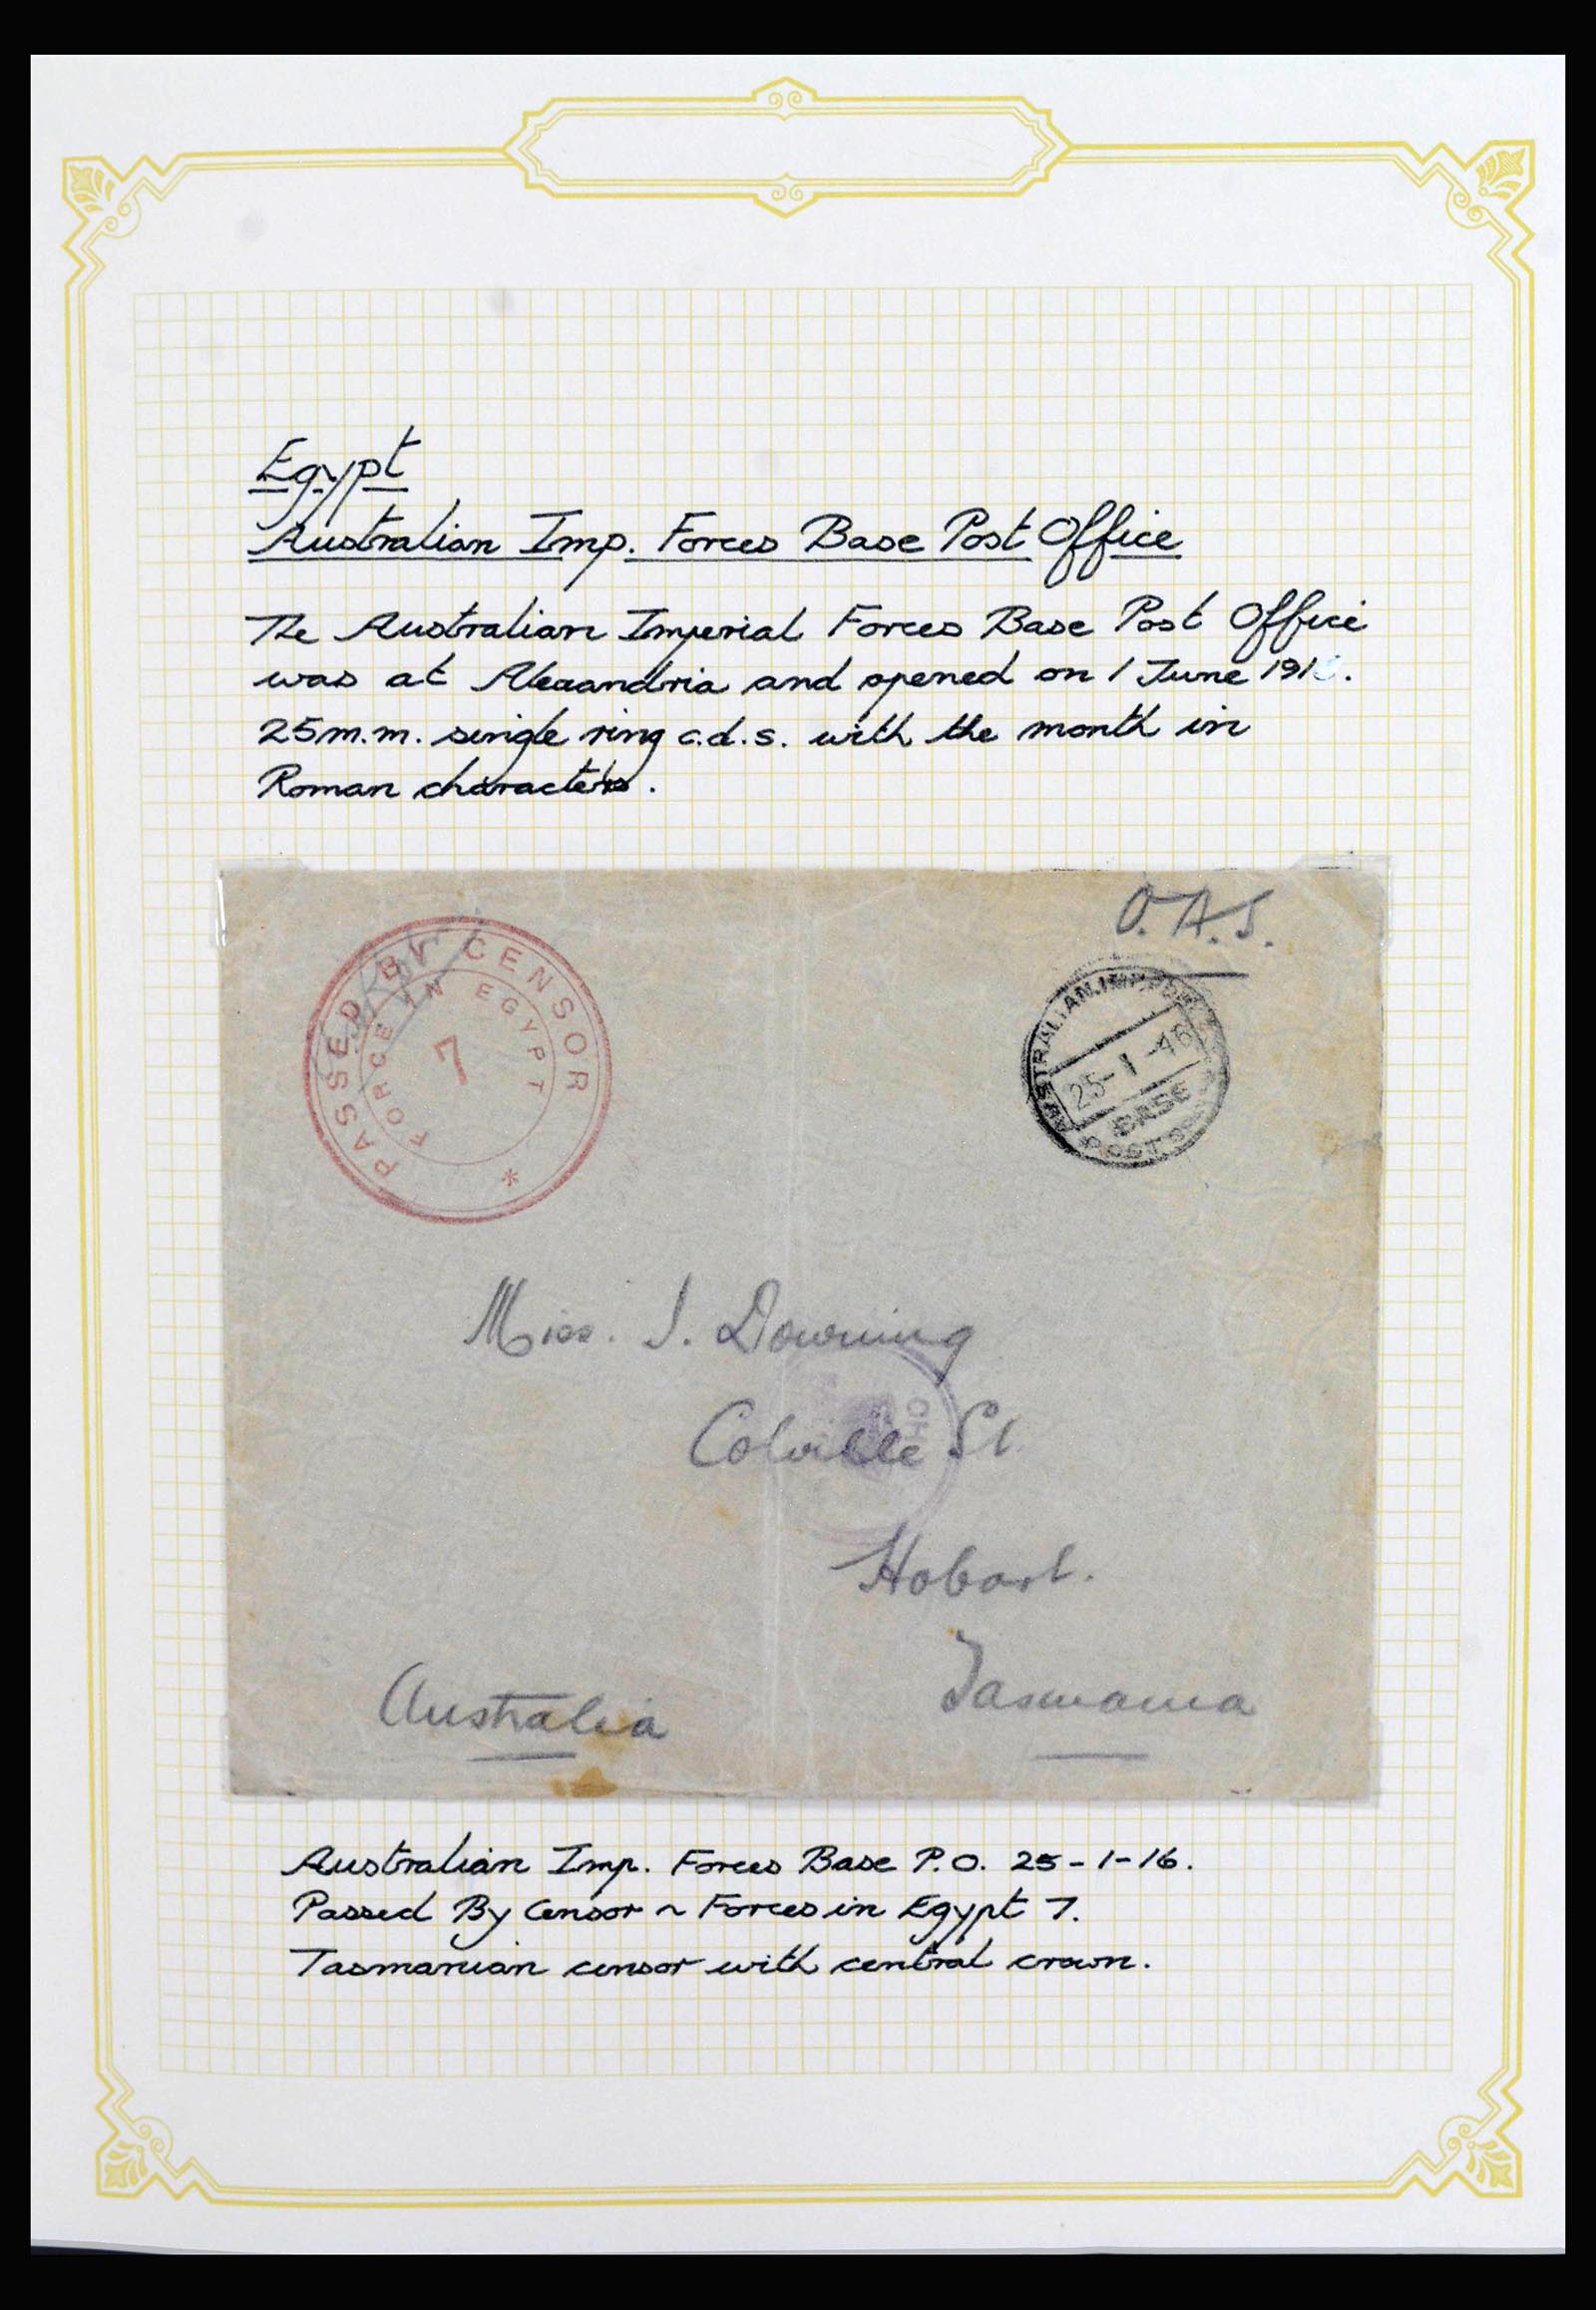 Egypt
Australian Imp. Forces Base Post Office
The Australian Imperial Forces Base Post Office
was at Alexandria and opened on 1 June 191 .
25m.m. single ring c.d.s. with the month in
Roman characters.
O.A.S.
PASSED BY CENSOR
FORCE IN EGYPT
7
*
AUSTRALIAN.IMP.FOR
25-1-16
BASE
POST
Miss. J. Downing
CH
Colville St.
Hobart.
Tasmania
Australia
Australian Imp. Forces Base P.O. 25-1-16.
Passed By Censor ~ Forces in Egypt 7.
Tasmanian censor with central crown.